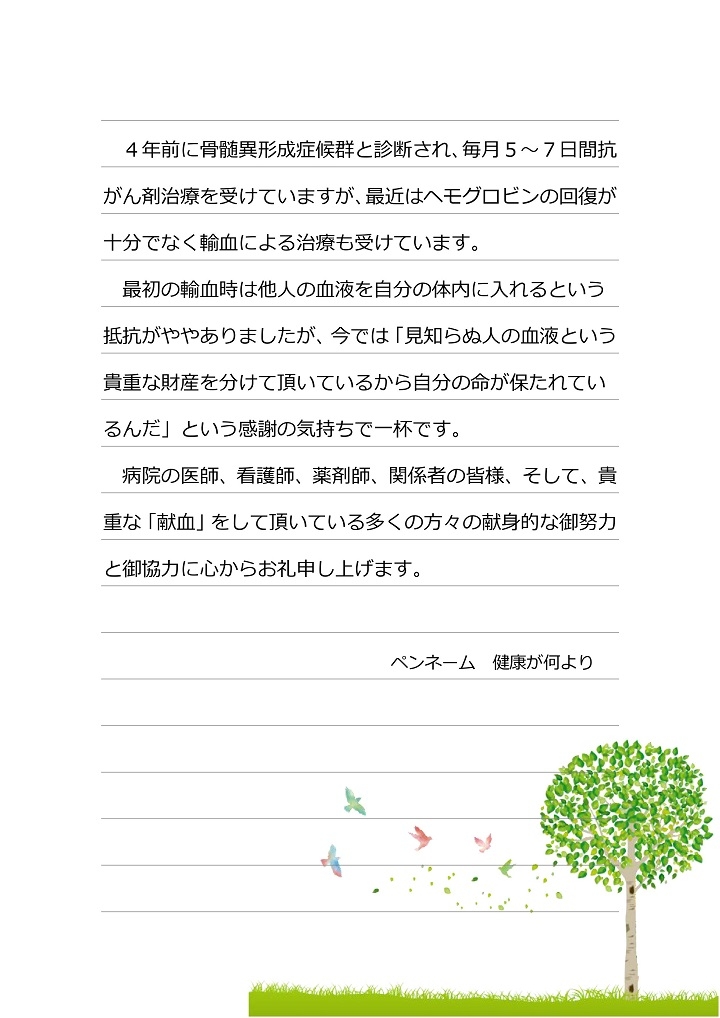 ４年前に骨髄異形成症候群と診断され、毎月５～７日間抗
がん剤治療を受けていますが、最近はヘモグロビンの回復が
十分でなく輸血による治療も受けています。
　最初の輸血時は他人の血液を自分の体内に入れるという
抵抗がややありましたが、今では「見知らぬ人の血液という
貴重な財産を分けて頂いているから自分の命が保たれてい
るんだ」という感謝の気持ちで一杯です。
　病院の医師、看護師、薬剤師、関係者の皆様、そして、貴
重な「献血」をして頂いている多くの方々の献身的な御努力
と御協力に心からお礼申し上げます。
ペンネーム　健康が何より